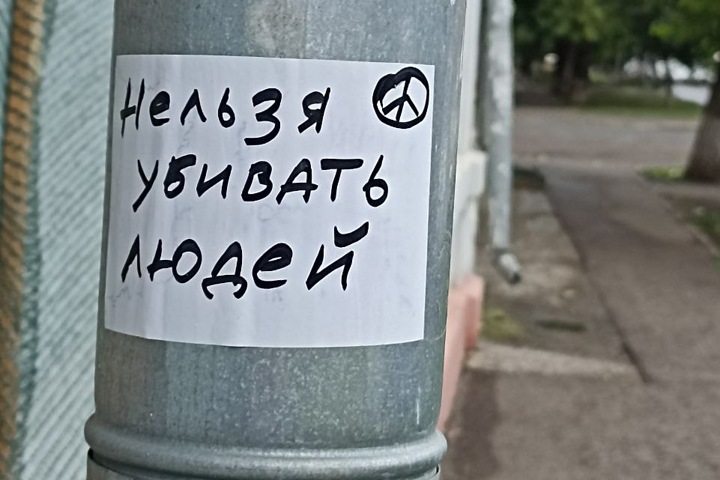 Нельзя
убивать
людей